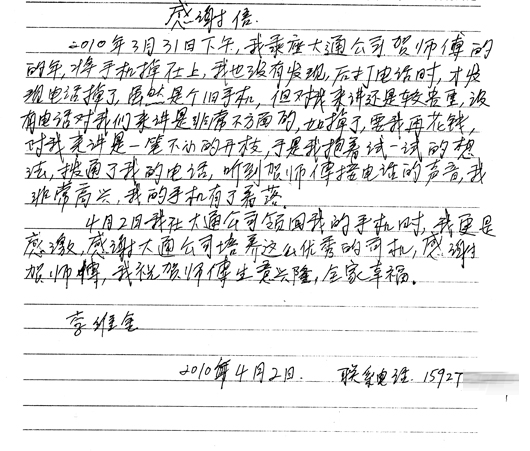 感谢信.
2010年3月31日下午,我乘座大通公司贺师傅的
的车,将手机掉在上,我也没有发现,后打电话时,才发
现电话掉了,虽然是个旧手机,但对我来讲还是较贵重,没
有电话对我们来讲是非常不方面的,如掉了,要我再花钱,
对我来讲是一笔不小的开枝,于是我抱着试一试的想
法,拨通了我的电话,听到贺师傅接电话的声音,我
非常高兴,我的手机有了着落.
4月2日我在大通公司领回我的手机时,我更是
感激,感谢大通公司培养这么优秀的司机,感谢
贺师傅,我祝贺师傅生意兴隆,全家幸福.
李维金
2010年4月2日. 联系电话. 15927